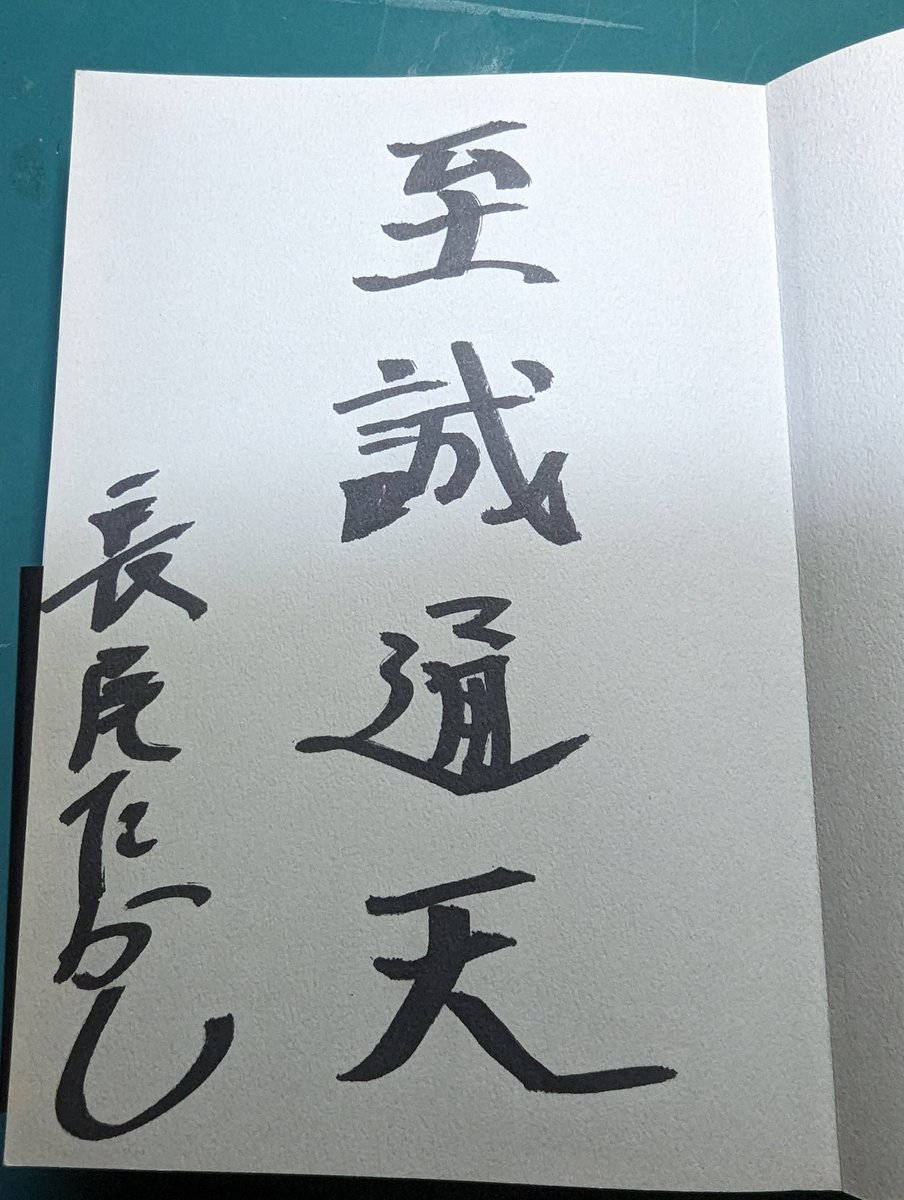 至誠通天
長尾たかし